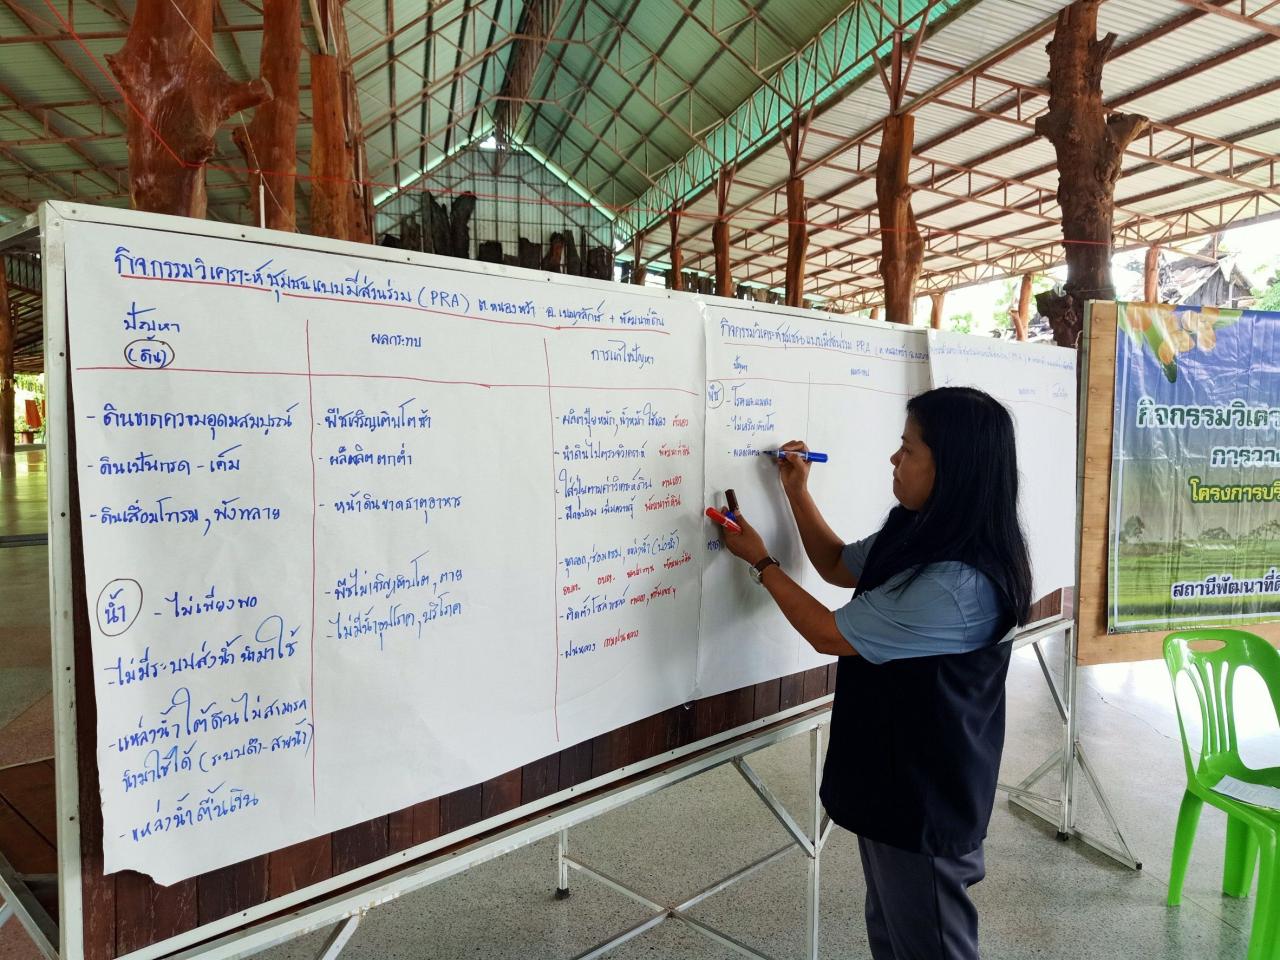 กิจกรรมวิเคราะห์ชุมชนแบบมีส่วนร่วม (PRA) ต.หนองหว้า อ.เบญจลักษ์ + พัฒนาที่ดิน
ปัญหา
ผลกระทบ
การแก้ไขปัญหา
(ดิน)
- ดินขาดความอุดมสมบูรณ์
- ดินเป็นกรด - เค็ม
- ดินเสื่อมโทรม, พังทลาย
น้ำ - ไม่เพียงพอ
- ไม่มีระบบส่งน้ำ นำมาใช้
- แหล่งน้ำใต้ดินไม่สามารถ
นำมาใช้ได้ (ระบบดำ-สายน้ำ)
- แหล่งน้ำตื้นเขิน
- พืชเจริญเติบโตช้า
- ผลผลิตตกต่ำ
- หน้าดินขาดธาตุอาหาร
- พืชไม่เจริญเติบโต, ตาย
- ไม่มีน้ำอุปโภค, บริโภค
- ผลิตปุ๋ยหมัก, น้ำหมัก ใช้เอง
- นำดินไปตรวจวิเคราะห์ พัฒนาที่ดิน
- ใส่ปุ๋ยตามค่าวิเคราะห์ดิน
- ฝึกอบรม เพิ่มความรู้ พัฒนาที่ดิน
- ขุดลอก, ซ่อมแซม, แหล่งน้ำ (บ่อน้ำ)
- ติดตั้งโซล่าเซลล์
- ฝนหลวง กรมฝนหลวง
กิจกรรมวิเคราะห์ชุมชนแบบมีส่วนร่วม PRA
ปัญหา
ผลกระทบ
พืช - โรคและแมลง
- ไม่เจริญเติบโต
- ผลผลิต
กิจกรรมวิเครา
การวา
โครงการบริ
สถานีพัฒนาที่ดิ